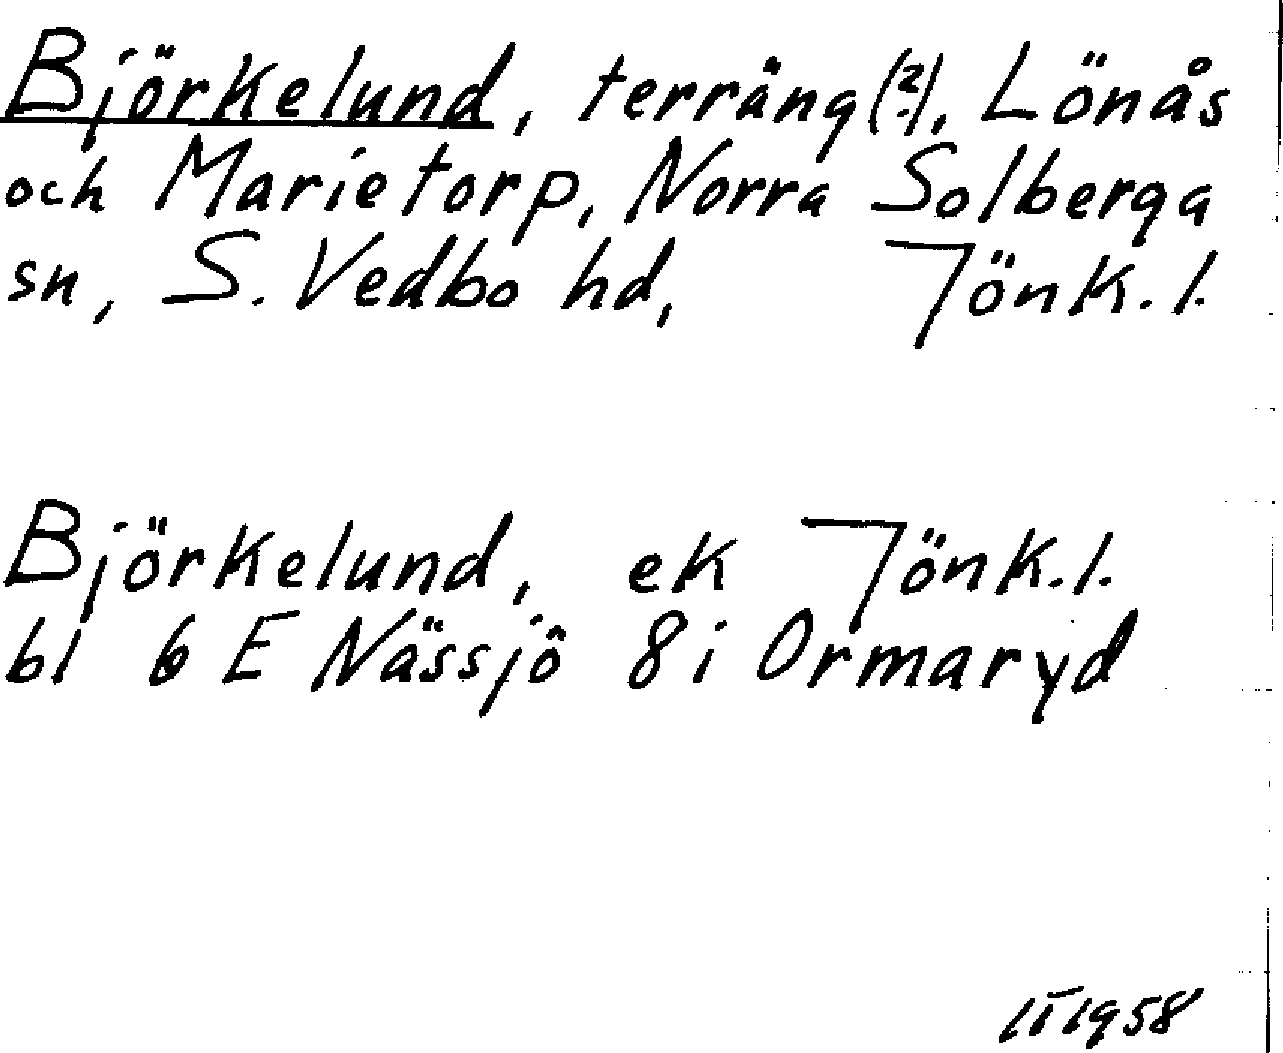 Björkelund, terräng (?), Lönås
och Marietorp, Norra Solberga
sn, S. Vedbo hd, Jönk. l.
Björkelund, ek Jönk. l.
bl 6 E Nässjö 8 i Ormaryd
1958